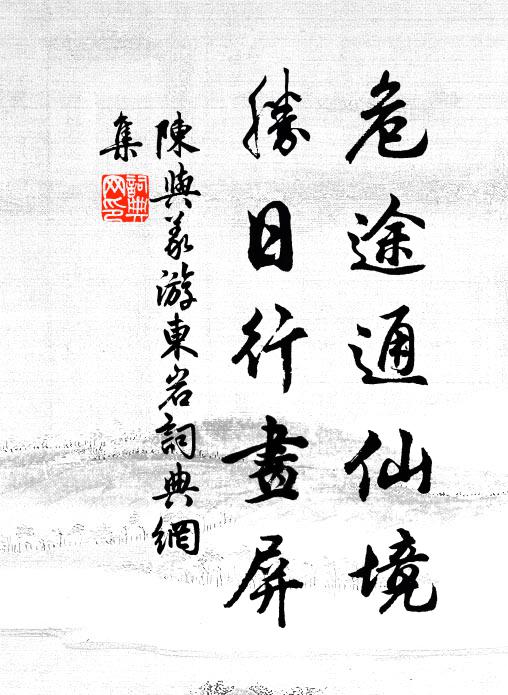 危途通仙境
勝日行畫屏
陳與義游東岩詞典網
集
詞典网印